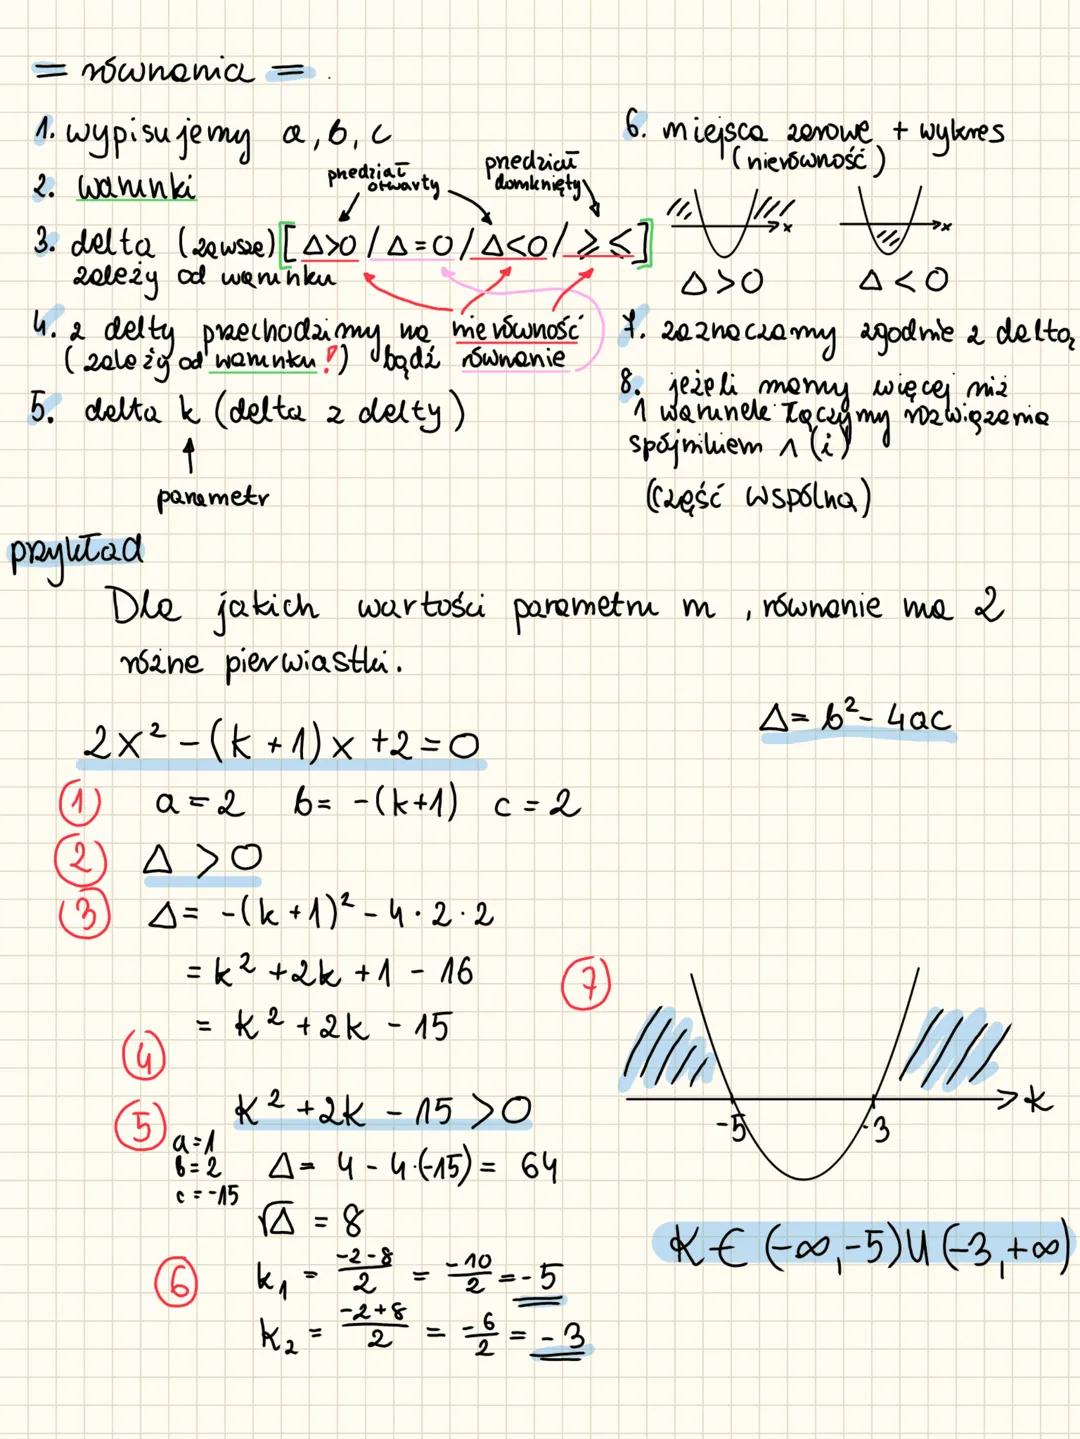 = równania =
1. wypisujemy a, b, c
2. warunki
przedział otwarty
przedział domknięty
3. delta (zawsze) [Δ>0 / Δ=0 / Δ<0 / ≥ ≤]
zależy od warunku
4. z delty przechodzimy na nierówność
(zależy od warunku!) bądź równanie
5. delta k (delta z delty)
parametr
6. miejsca zerowe + wykres
(nierówność)
x
x
Δ>0
Δ<0
7. zaznaczamy zgodnie z deltą
8. jeżeli mamy więcej niż
1 warunek łączymy rozwiązania
spójnikiem ∧ (i)
(część wspólna)
przykład
Dla jakich wartości parametru m, równanie ma 2
różne pierwiastki.
Δ= b²- 4ac
2x² - (k+1)x +2=0
1 a=2 b= -(k+1) c=2
2 Δ >0
3 Δ= -(k+1)² - 4·2·2
= k² +2k +1 - 16
= k² +2k - 15
4
5 k² +2k - 15 >0
a=1
b=2
c=-15
Δ= 4 - 4·(-15) = 64
√Δ = 8
6 k₁ = -2-8/2 = -10/2 = -5
k₂ = -2+8/2 = -6/2 = -3
7
-5
-3
k
K∈ (-∞,-5)∪(-3,+∞)